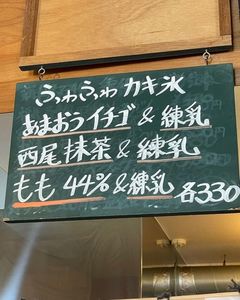 ふわふわ カキ氷
あまおうイチゴ & 練乳
西尾 抹茶 & 練乳
もも 44% & 練乳 各330